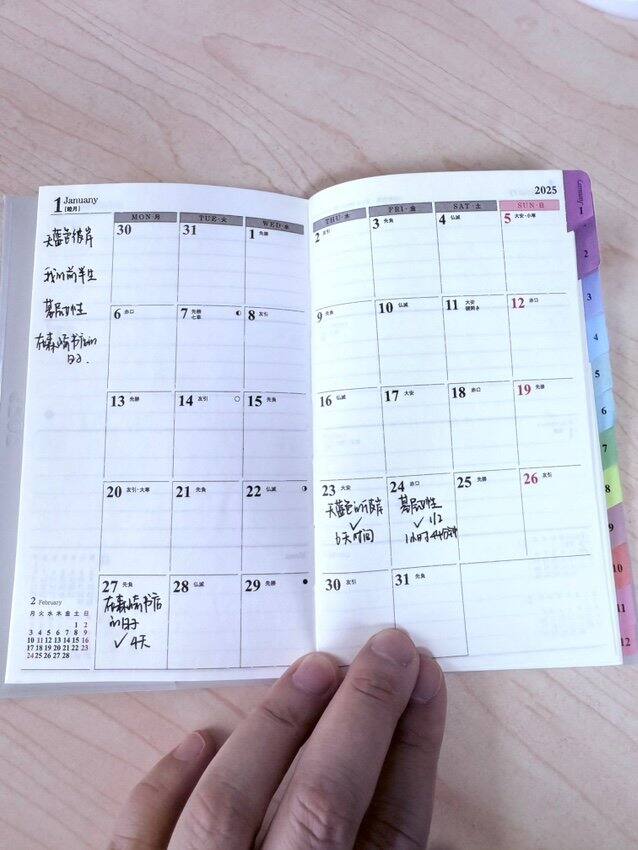 1 January
[睦月]
2025
January
MON・月 TUE・火 WED・水 THU・木 FRI・金 SAT・土 SUN・日
天蓝色彼岸
我的前半生
基层女性
在森崎书店的
日子.
30 31 1 先勝 2 友引 3 先負 4 仏滅 5 大安・小寒
6 赤口 7 先勝 七草 8 友引 9 先負 10 仏滅 11 大安 鏡開き 12 赤口
13 先勝 14 友引 15 先負 16 仏滅 17 大安 18 赤口 19 先勝
20 友引・大寒 21 先負 22 仏滅 23 大安 24 赤口 25 先勝 26 友引
天蓝色的彼岸
✓
6天时间
基层女性
✓ 1/2
1小时44分钟
27 先負 28 仏滅 29 先勝 30 友引 31 先負
在森崎书店
的日子
✓ 4天
2 February
月 火 水 木 金 土 日
1 2
3 4 5 6 7 8 9
10 11 12 13 14 15 16
17 18 19 20 21 22 23
24 25 26 27 28
1
2
3
4
5
6
7
8
9
10
11
12